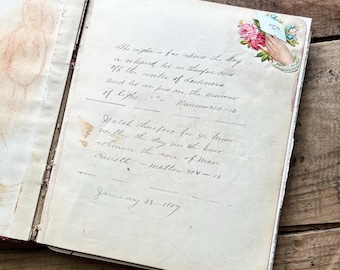 The night is far spent the day
is at hand let us therefore cast
off the works of darkness
and let us put on the armour
of light. Romans
Watch therefore for ye know
neither the day nor the hour
wherein the son of man
cometh - Matthew
January 23 - 1887